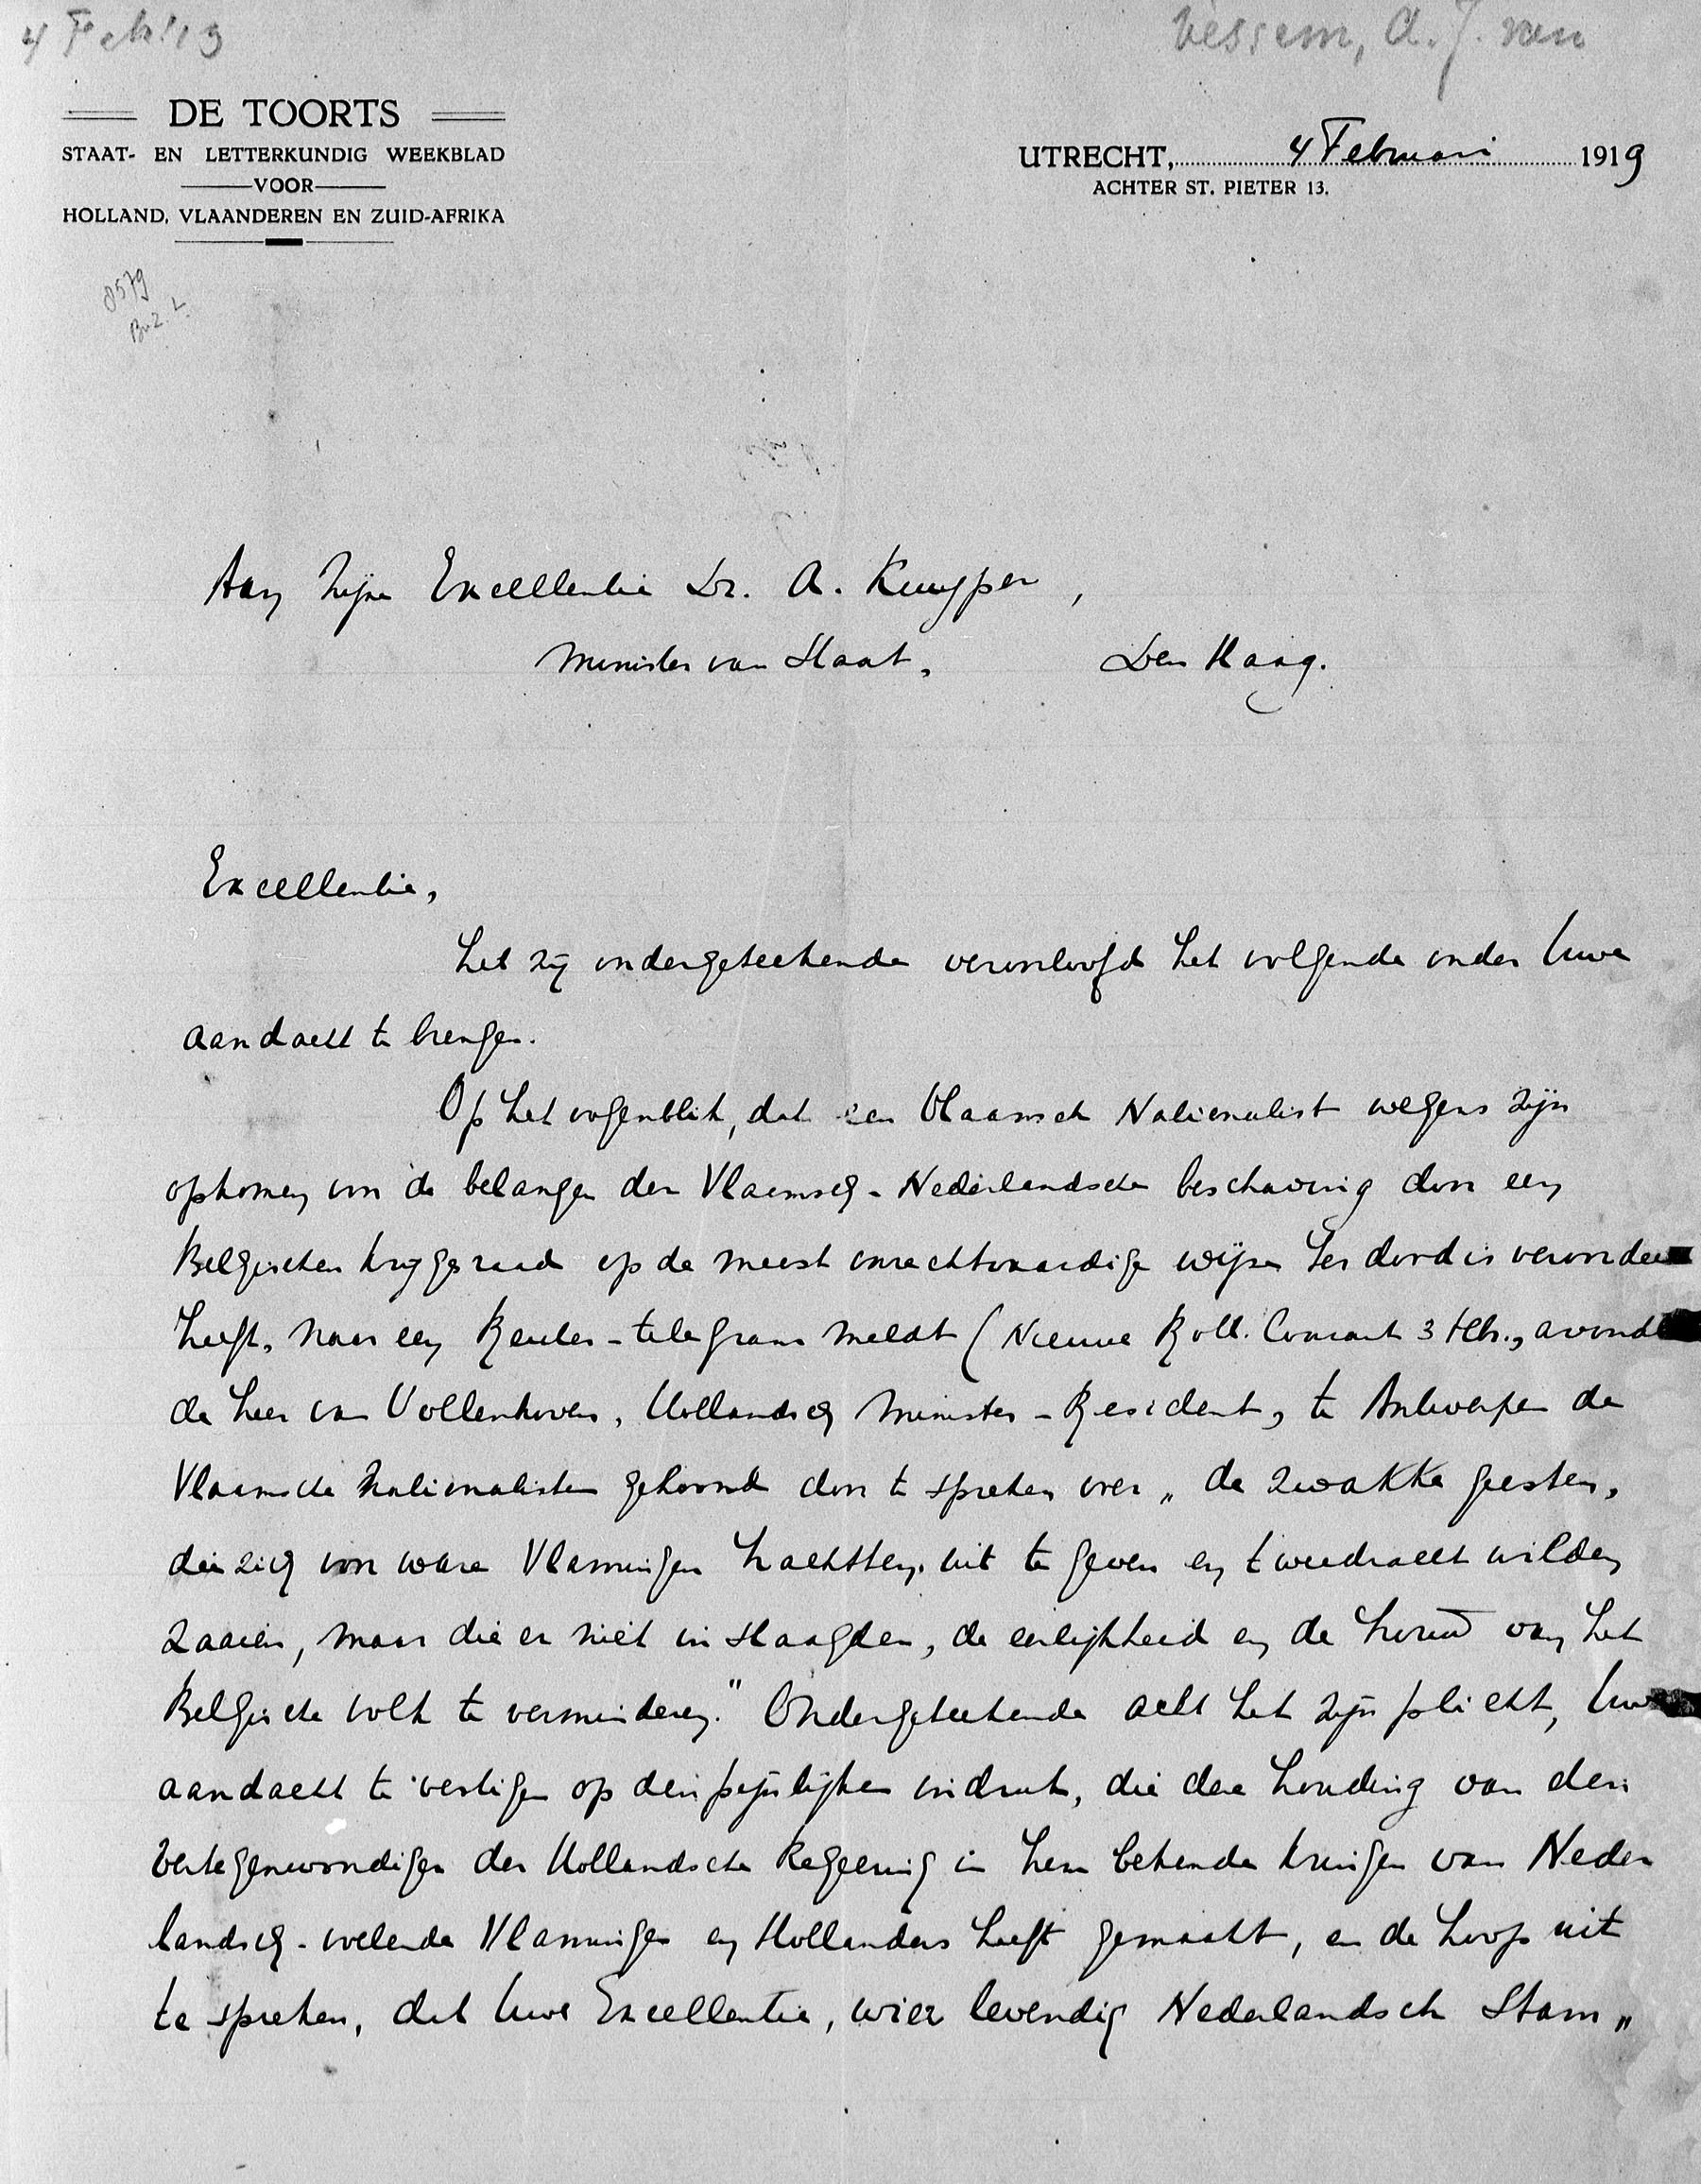 4 Feb '19
Vessem, A. J. van
DE TOORTS
STAAT- EN LETTERKUNDIG WEEKBLAD
VOOR
HOLLAND, VLAANDEREN EN ZUID-AFRIKA
UTRECHT, 4 Februari 1919
ACHTER ST. PIETER 13.
8579
Aan Zijne Excellentie Dr. A. Kuyper,
Minister van Staat, Den Haag.
Excellentie,
Het zij ondergeteekende veroorloofd het volgende onder Uwe
aandacht te brengen.
Op het oogenblik, dat een Vlaamsch Nationalist wegens zijn
opkomen voor de belangen der Vlaamsch-Nederlandsche beschaving door een
Belgischen krijgsraad op de meest onrechtvaardige wijze ter dood is veroordeel
heeft, naar een Reuter-telegram meldt (Nieuwe Rott. Courant 3 Feb., avond
de heer van Vollenhoven, Hollandsch Minister-Resident, te Antwerpen de
Vlaamsche Nationalisten gehoond door te spreken over „de zwakke geesten,
die zich voor ware Vlamingen trachtten uit te geven en tweedracht wilden
zaaien, maar die er niet in slaagden, de eerlijkheid en de trouw van het
Belgische volk te verminderen." Ondergeteekende acht het zijn plicht, Uwe
aandacht te vestigen op den pijnlijken indruk, die deze houding van den
vertegenwoordiger der Hollandsche Regeering in hem bekende kringen van Neder
landsch-voelende Vlamingen en Hollanders heeft gemaakt, en de hoop uit
te spreken, dat Uwe Excellentie, wier levendig Nederlandsch Stam„